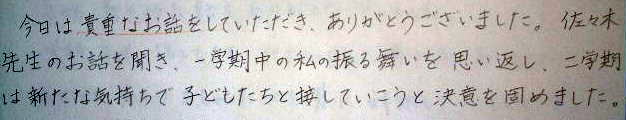 今日は貴重なお話をしていただき、ありがとうございました。佐々木
先生のお話を聞き、一学期中の私の振る舞いを思い返し、二学期
は新たな気持ちで子どもたちと接していこうと決意を固めました。